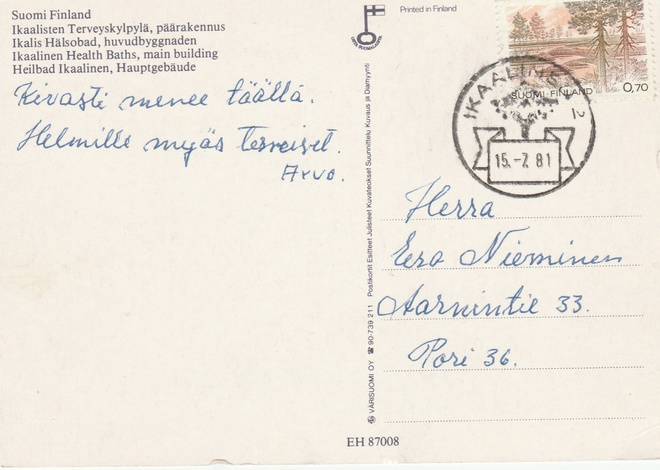 Suomi Finland
Ikaalisten Terveyskylpylä, päärakennus
Ikalis Hälsobad, huvudbyggnaden
Ikaalinen Health Baths, main building
Heilbad Ikaalinen, Hauptgebäude
Kivasti menee täällä.
Helmille myös terveiset.
Arvo.
Printed in Finland
SUOMI FINLAND
0,70
IKAALINEN 2
15.-7.81
Herra
Eero Nieminen
Aarnintie 33.
Pori 36.
VÄRISUOMI OY ☎ 90-739 211 Postikortit Esitteet Julisteet Kuvateokset Suunnittelu Kuvaus ja Diamyynti
EH 87008